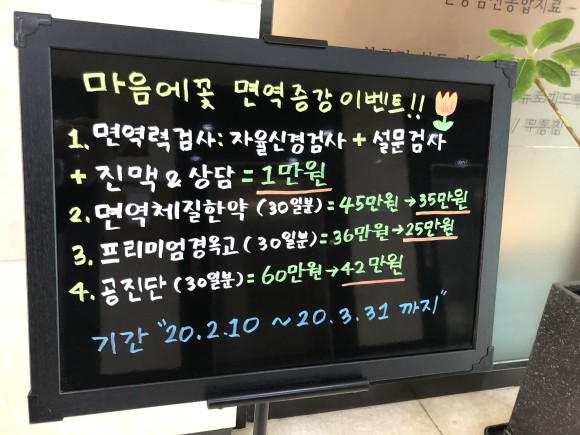 마음에꽃 면역증강 이벤트!!
1. 면역력검사: 자율신경검사 + 설문검사
+ 진맥 & 상담 = 1만원
2. 면역체질한약 (30일분) = 45만원 → 35만원
3. 프리미엄경옥고 (30일분) = 36만원 → 25만원
4. 공진단 (30일분) = 60만원 → 42만원
기간 "20.2.10 ~ 20.3.31 까지"